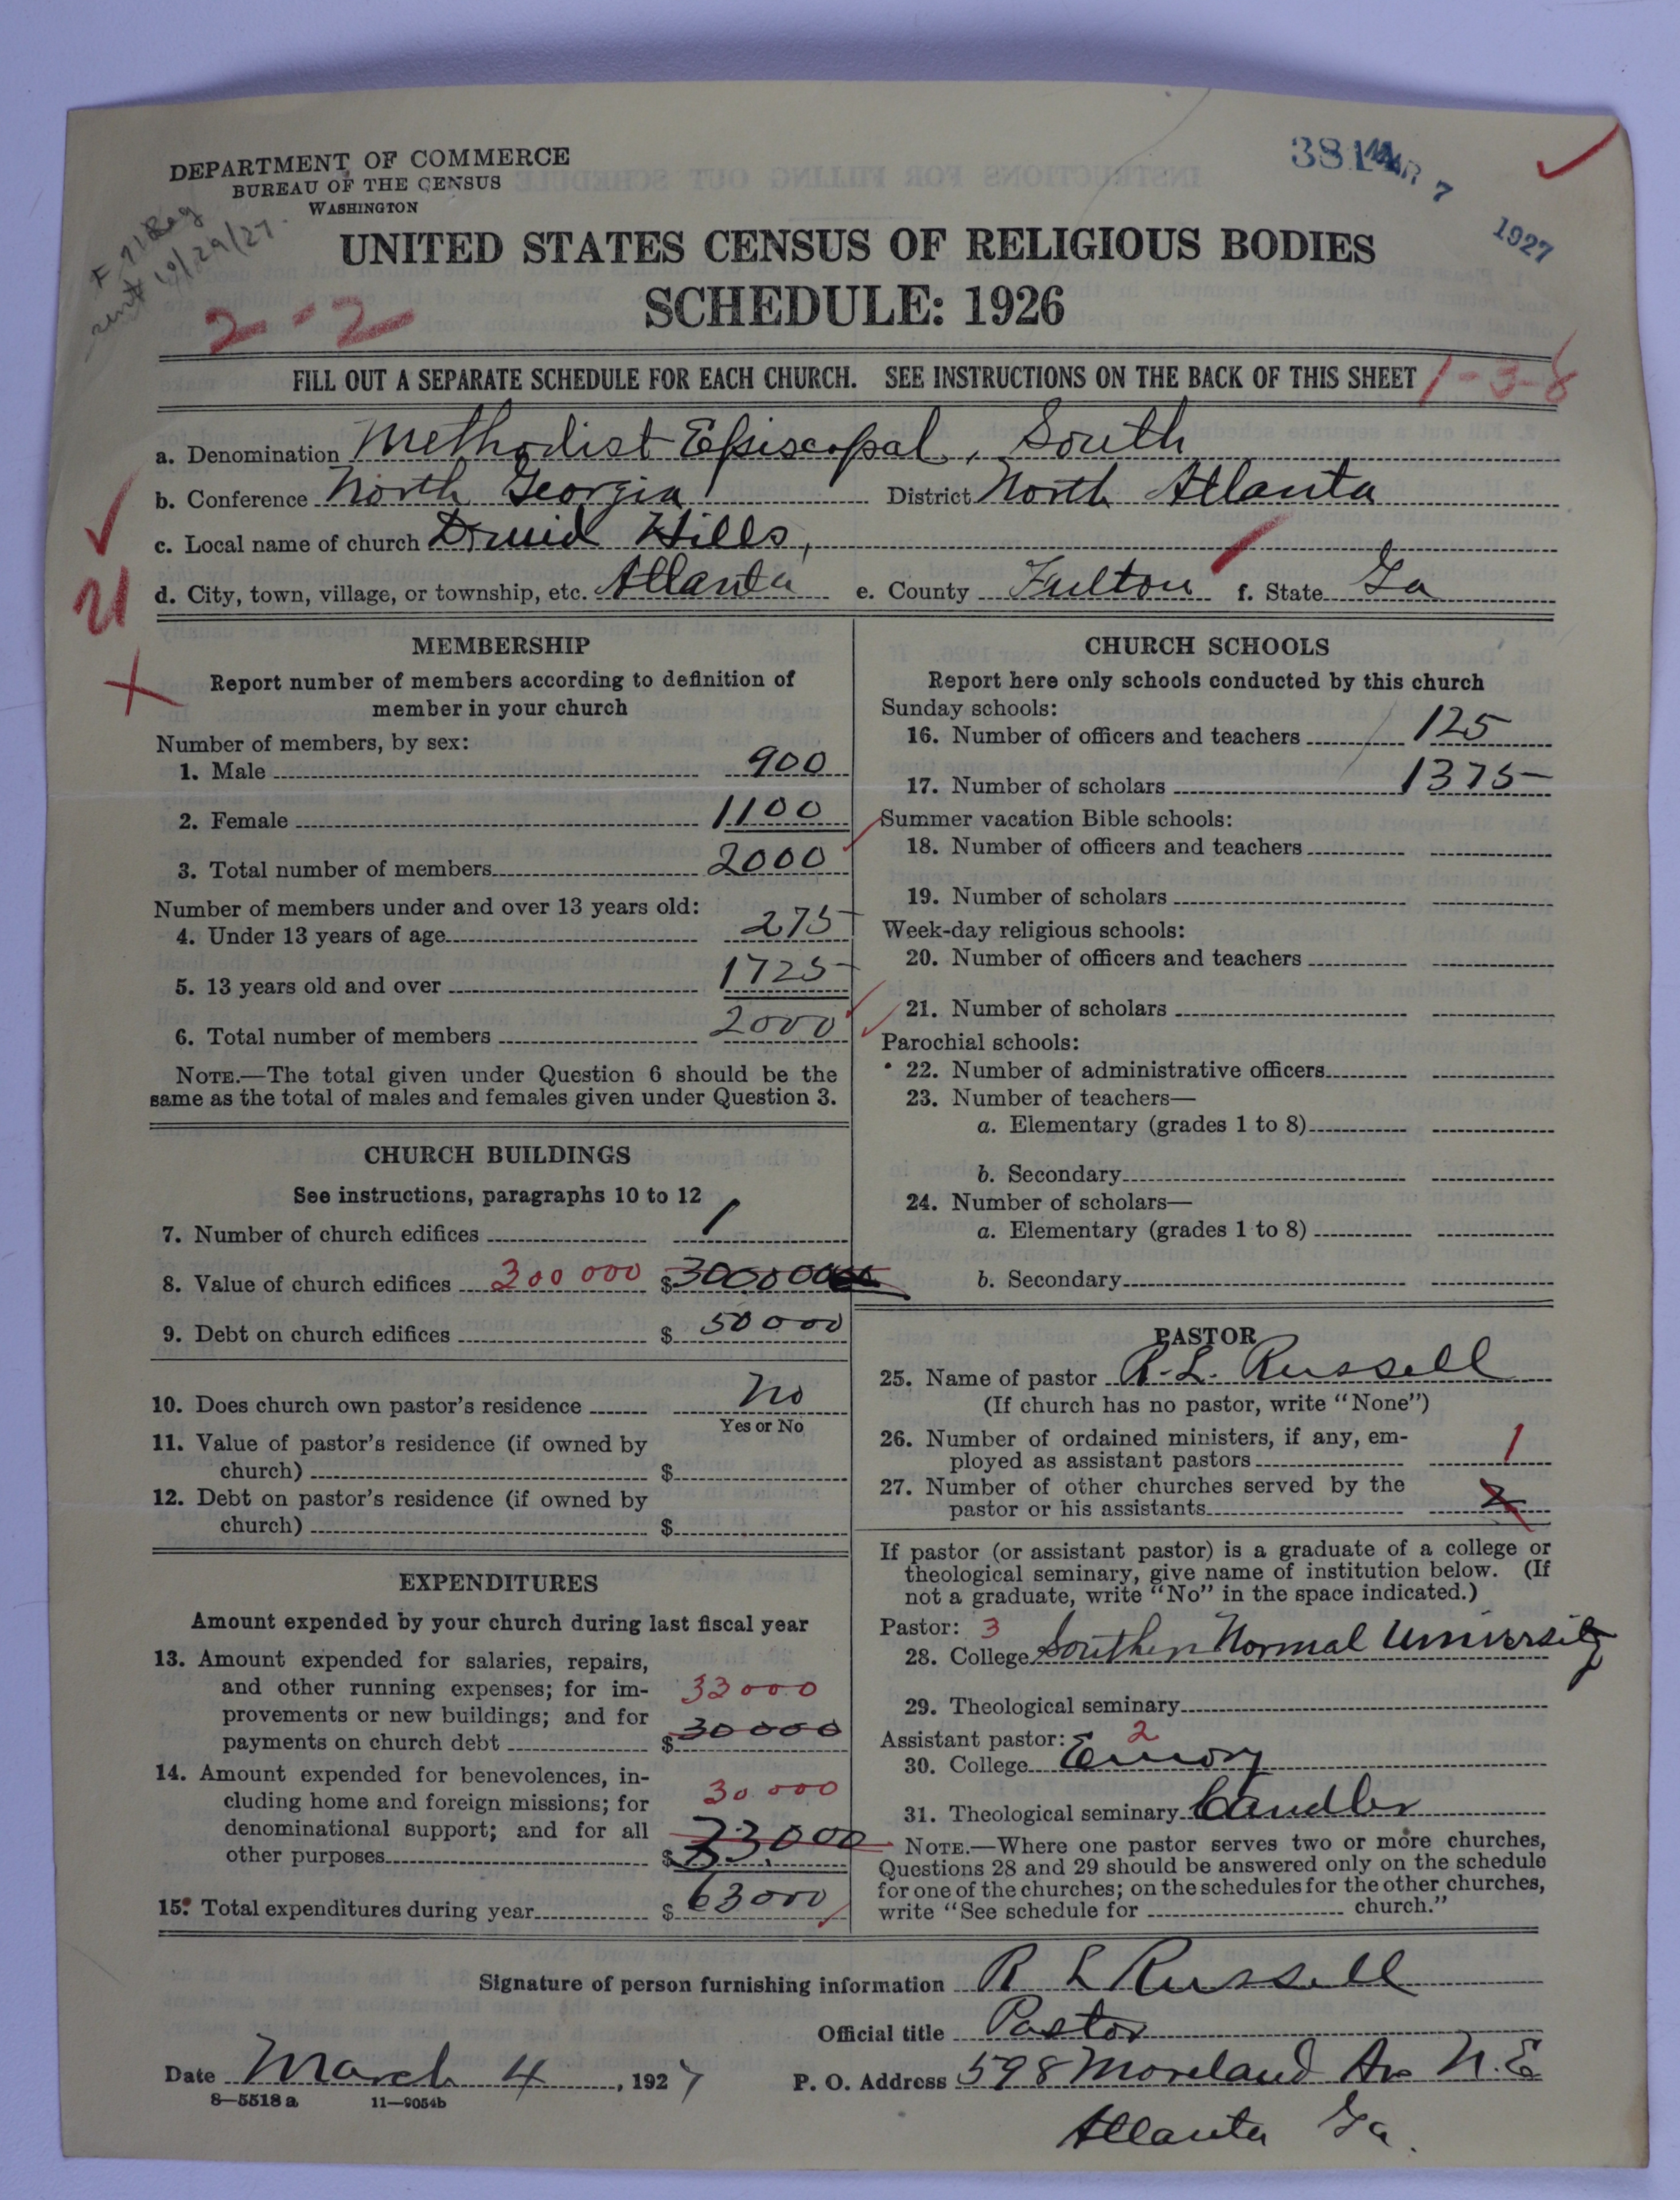 DEPARTMENT OF COMMERCE
BUREAU OF THE CENSUS
WASHINGTON
381 MAR 7 1927
10/29/27
UNITED STATES CENSUS OF RELIGIOUS BODIES
SCHEDULE: 1926
2-2
FILL OUT A SEPARATE SCHEDULE FOR EACH CHURCH. SEE INSTRUCTIONS ON THE BACK OF THIS SHEET 1-3-8
a. Denomination Methodist Episcopal, South
b. Conference North Georgia District North Atlanta
c. Local name of church Druid Hills,
d. City, town, village, or township, etc. Atlanta e. County Fulton f. State Ga
MEMBERSHIP
Report number of members according to definition of
member in your church
Number of members, by sex:
1. Male 900
2. Female 1100
3. Total number of members 2000
Number of members under and over 13 years old:
4. Under 13 years of age 275
5. 13 years old and over 1725
6. Total number of members 2000
NOTE.—The total given under Question 6 should be the
same as the total of males and females given under Question 3.
CHURCH BUILDINGS
See instructions, paragraphs 10 to 12
7. Number of church edifices 1
8. Value of church edifices 300 000 $ 300000
9. Debt on church edifices $ 50000
10. Does church own pastor's residence No
Yes or No
11. Value of pastor's residence (if owned by
church) $
12. Debt on pastor's residence (if owned by
church) $
EXPENDITURES
Amount expended by your church during last fiscal year
13. Amount expended for salaries, repairs,
and other running expenses; for im- 33000
provements or new buildings; and for
payments on church debt $ 30000
14. Amount expended for benevolences, in-
cluding home and foreign missions; for 30000
denominational support; and for all
other purposes $ 33000
15. Total expenditures during year $ 63000
CHURCH SCHOOLS
Report here only schools conducted by this church
Sunday schools:
16. Number of officers and teachers 125
17. Number of scholars 1375
Summer vacation Bible schools:
18. Number of officers and teachers
19. Number of scholars
Week-day religious schools:
20. Number of officers and teachers
21. Number of scholars
Parochial schools:
22. Number of administrative officers
23. Number of teachers—
a. Elementary (grades 1 to 8)
b. Secondary
24. Number of scholars—
a. Elementary (grades 1 to 8)
b. Secondary
PASTOR
25. Name of pastor R. L. Russell
(If church has no pastor, write "None")
26. Number of ordained ministers, if any, em-
ployed as assistant pastors 1
27. Number of other churches served by the
pastor or his assistants 2
If pastor (or assistant pastor) is a graduate of a college or
theological seminary, give name of institution below. (If
not a graduate, write "No" in the space indicated.)
Pastor: 3
28. College Southern Normal University
29. Theological seminary
Assistant pastor: 2
30. College Emory
31. Theological seminary Candler
NOTE.—Where one pastor serves two or more churches,
Questions 28 and 29 should be answered only on the schedule
for one of the churches; on the schedules for the other churches,
write "See schedule for church."
Signature of person furnishing information R L Russell
Official title Pastor
Date March 4, 1927 P. O. Address 598 Moreland Av N.E
8—5518a 11—9054b
Atlanta Ga.